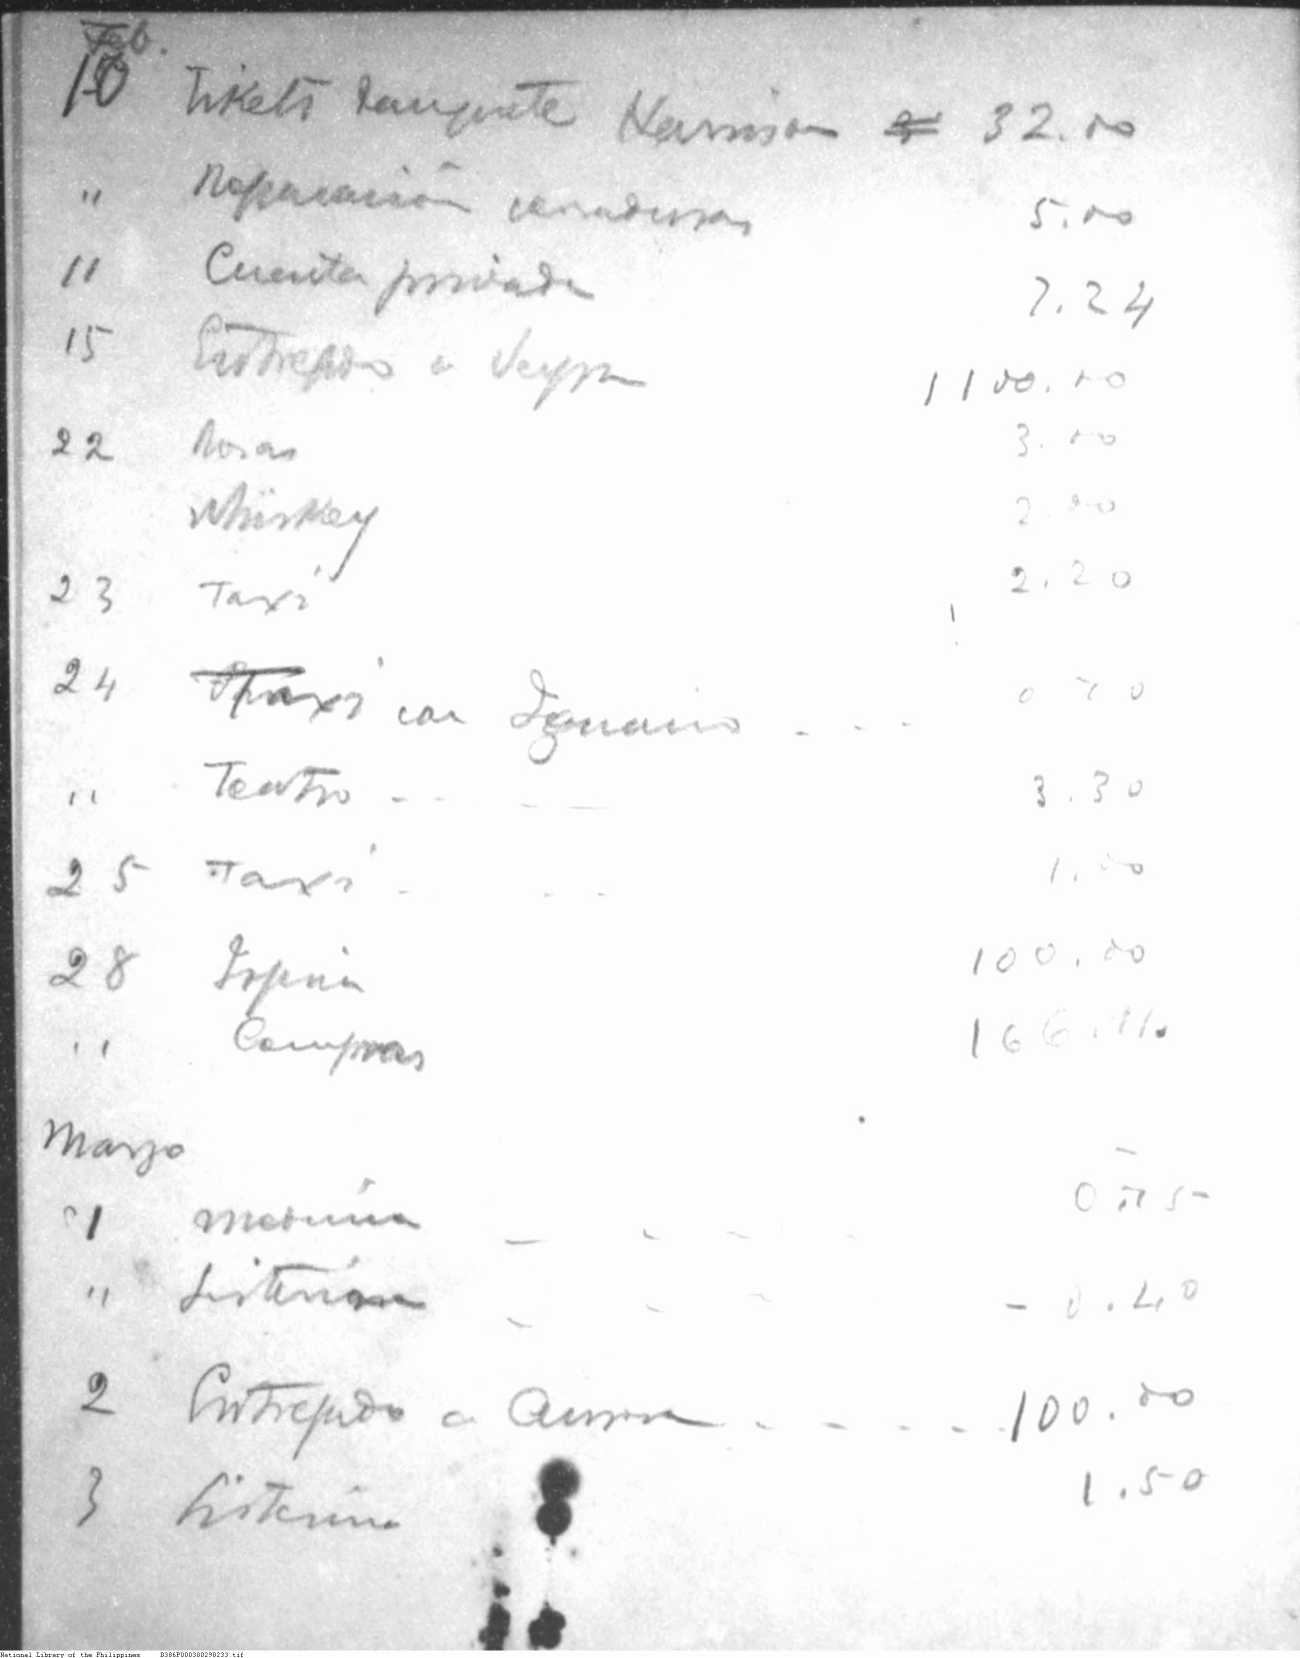 Feb.
10 Tikets banquete Harrison ₱ 32.00
" Reparación cerraduras 5.00
11 Cuenta privada 7.24
15 Entregado a Veyra 1100.00
22 Rosas 3.00
Whiskey 2.00
23 Taxi 2.20
24 Taxi con Ignacio - - - 0 70
" Teatro - - - - 3.30
25 Taxi - - - 1.00
28 100.00
" Compras 166.
Marzo
1 medicina - - - -
" Listerina - - - - 0.40
2 Entregado a Aurora - - - - - 100.00
3 Listerina 1.50
National Library of the Philippines B386P000300290233.tif